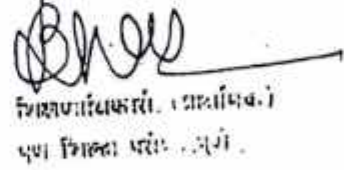 शिक्षणाधिकारी. (प्राथमिक.)
पुणे जिल्हा परिषद, पुणे.